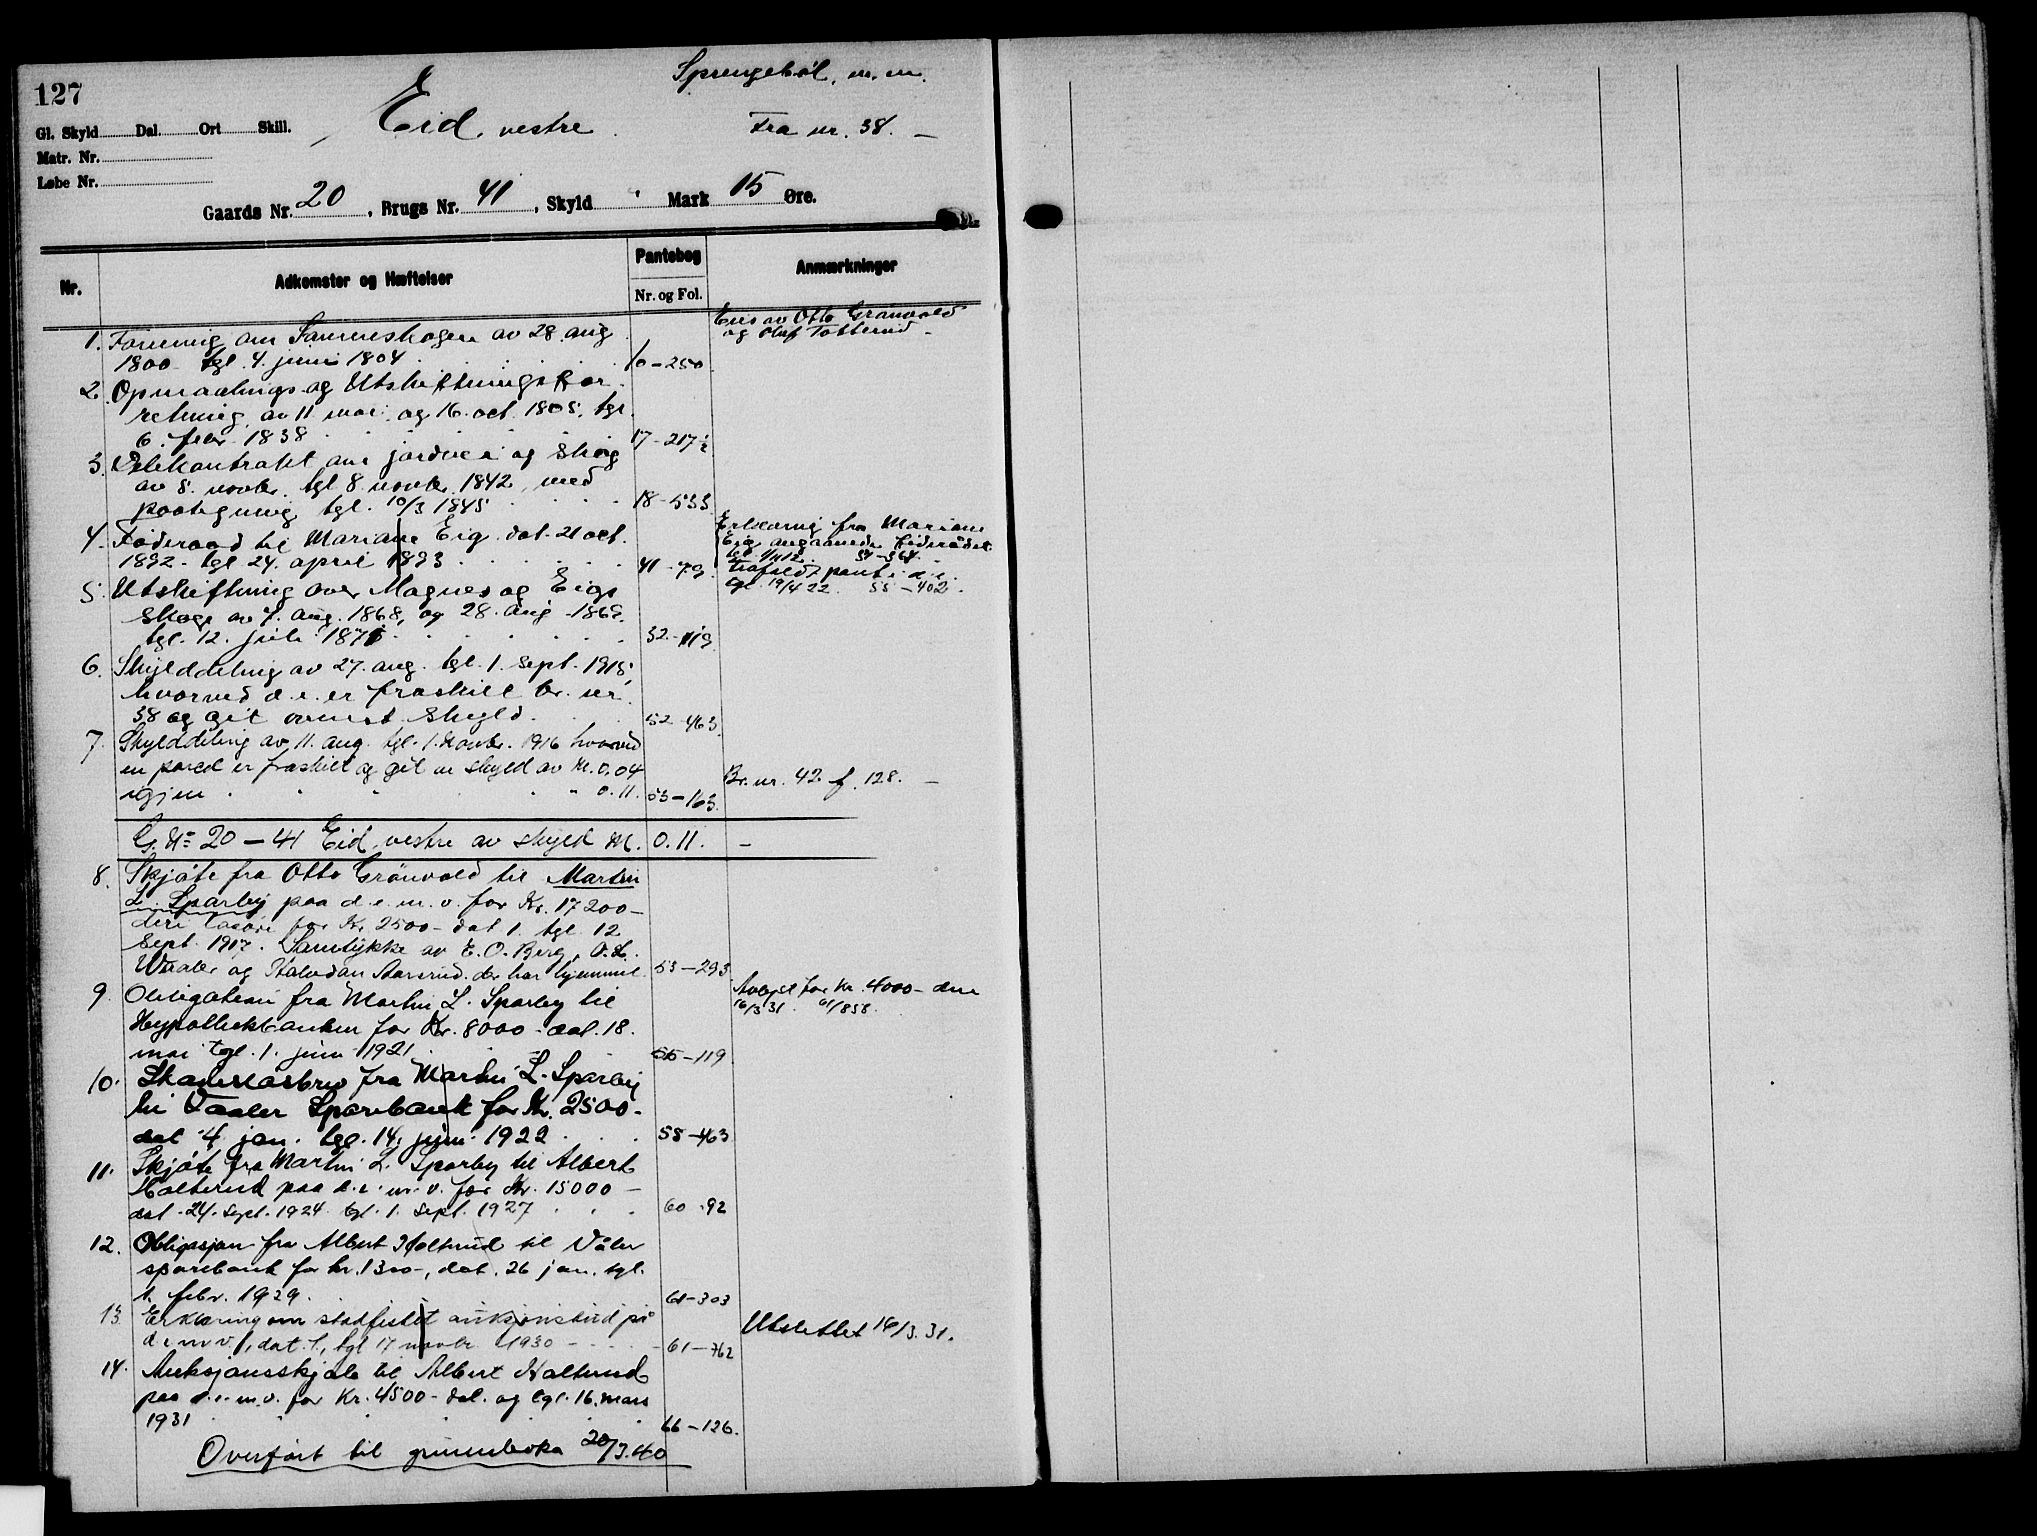 127
Sprengebøl, m.m.
Gl. Skyld Dal. Ort Skill.
Eid, vestre.
Fra nr. 38. —
Matr. Nr.
Løbe Nr.
Gaards Nr. 20, Brugs Nr. 41, Skyld " Mark 15 Øre.
Nr.
Adkomster og Hæftelser
Pantebog
Nr. og Fol.
Anmærkninger
Eies av Otto Grønvold
og Oluf Totterud —
1. Forening om av 28. aug
1800 tgl. 4. juni 1804 10-250
2. Opmaalings og Utskiftningsfor-
retning av 11. mai og 16. oct. 1805, tgl.
6. febr. 1838 17-217½
3. Delekontrakt om jordvei og skog
av 5. novbr. tgl. 8. novbr. 1842, med
paategning tgl. 10/3 1845 18-533
4. Føderaad til Mariane Eig dat. 21 oct.
1892 tgl 24. april 1893 41-79.
Erklæring fra Mariane
Eig angaaende føderådet
tgl. 54-364.
Frafaldt pant i d.e.
tgl. 19/4 22. 55-402.
5. Utskiftning over Magnes og Eigs
skoge av 7. aug. 1868, og 28. aug 1869.
tgl. 12. juli 1871 32-119
6. Skylddeling av 27. aug. tgl. 1. sept. 1915,
hvorved d.e. er fraskilt br. nr.
38 og git ovennt. skyld. 52-463.
7. Skylddeling av 11. aug. tgl. 1. novbr. 1916 hvorved
en parcel er fraskilt og git en skyld av M. 0,04
igjen " " " 0.11. 53-163.
Br. nr. 42 f. 128. —
G. Nr 20-41 Eid vestre av skyld M. 0.11. —
8. Skjøte fra Otto Grønvold til Martin
L. Sparby paa d.e. m.v. for Kr. 17200—
deri løsøre for Kr. 2500- dat 1. tgl 12
Sept. 1917. Samtykke av E. O. Berg, O. L.
Waaler og Halvdan Aarsrud. der har hjemmel 53-293
9. Obligation fra Martin L. Sparby til
Hypothekbanken for Kr. 8000- dat. 18.
mai tgl. 1. juni 1921 55-119
Avlyst for kr. 4000- den
16/3 31. 61/858.
10. Skadesløsbrev fra Martin L. Sparby
til Vaaler Sparebank for Kr. 2500-
dat 4. jan. tgl. 14. juni 1922 55-463
11. Skjøte fra Martin L. Sparby til Albert
Holterud paa d.e. m.v. for Kr. 15000 —
dat. 24. sept. 1924 tgl. 1. sept. 1927 60-92
12. Obligasjon fra Albert Holterud til Våler
sparebank for kr. 1300-, dat. 26 jan. tgl.
1. febr. 1929. 61-303
13. Erklæring om stadfestet auksjonsbud på
d.e. m.v., dat. 1., tgl 17 novbr 1930 61-762
Utslettet 16/3. 31.
14. Auksjonsskjøte til Albert Holterud
paa d.e. m.v. for Kr. 4500- dat. og tgl. 16. mars
1931 66-126.
Overført til grunnboka 20/3.40